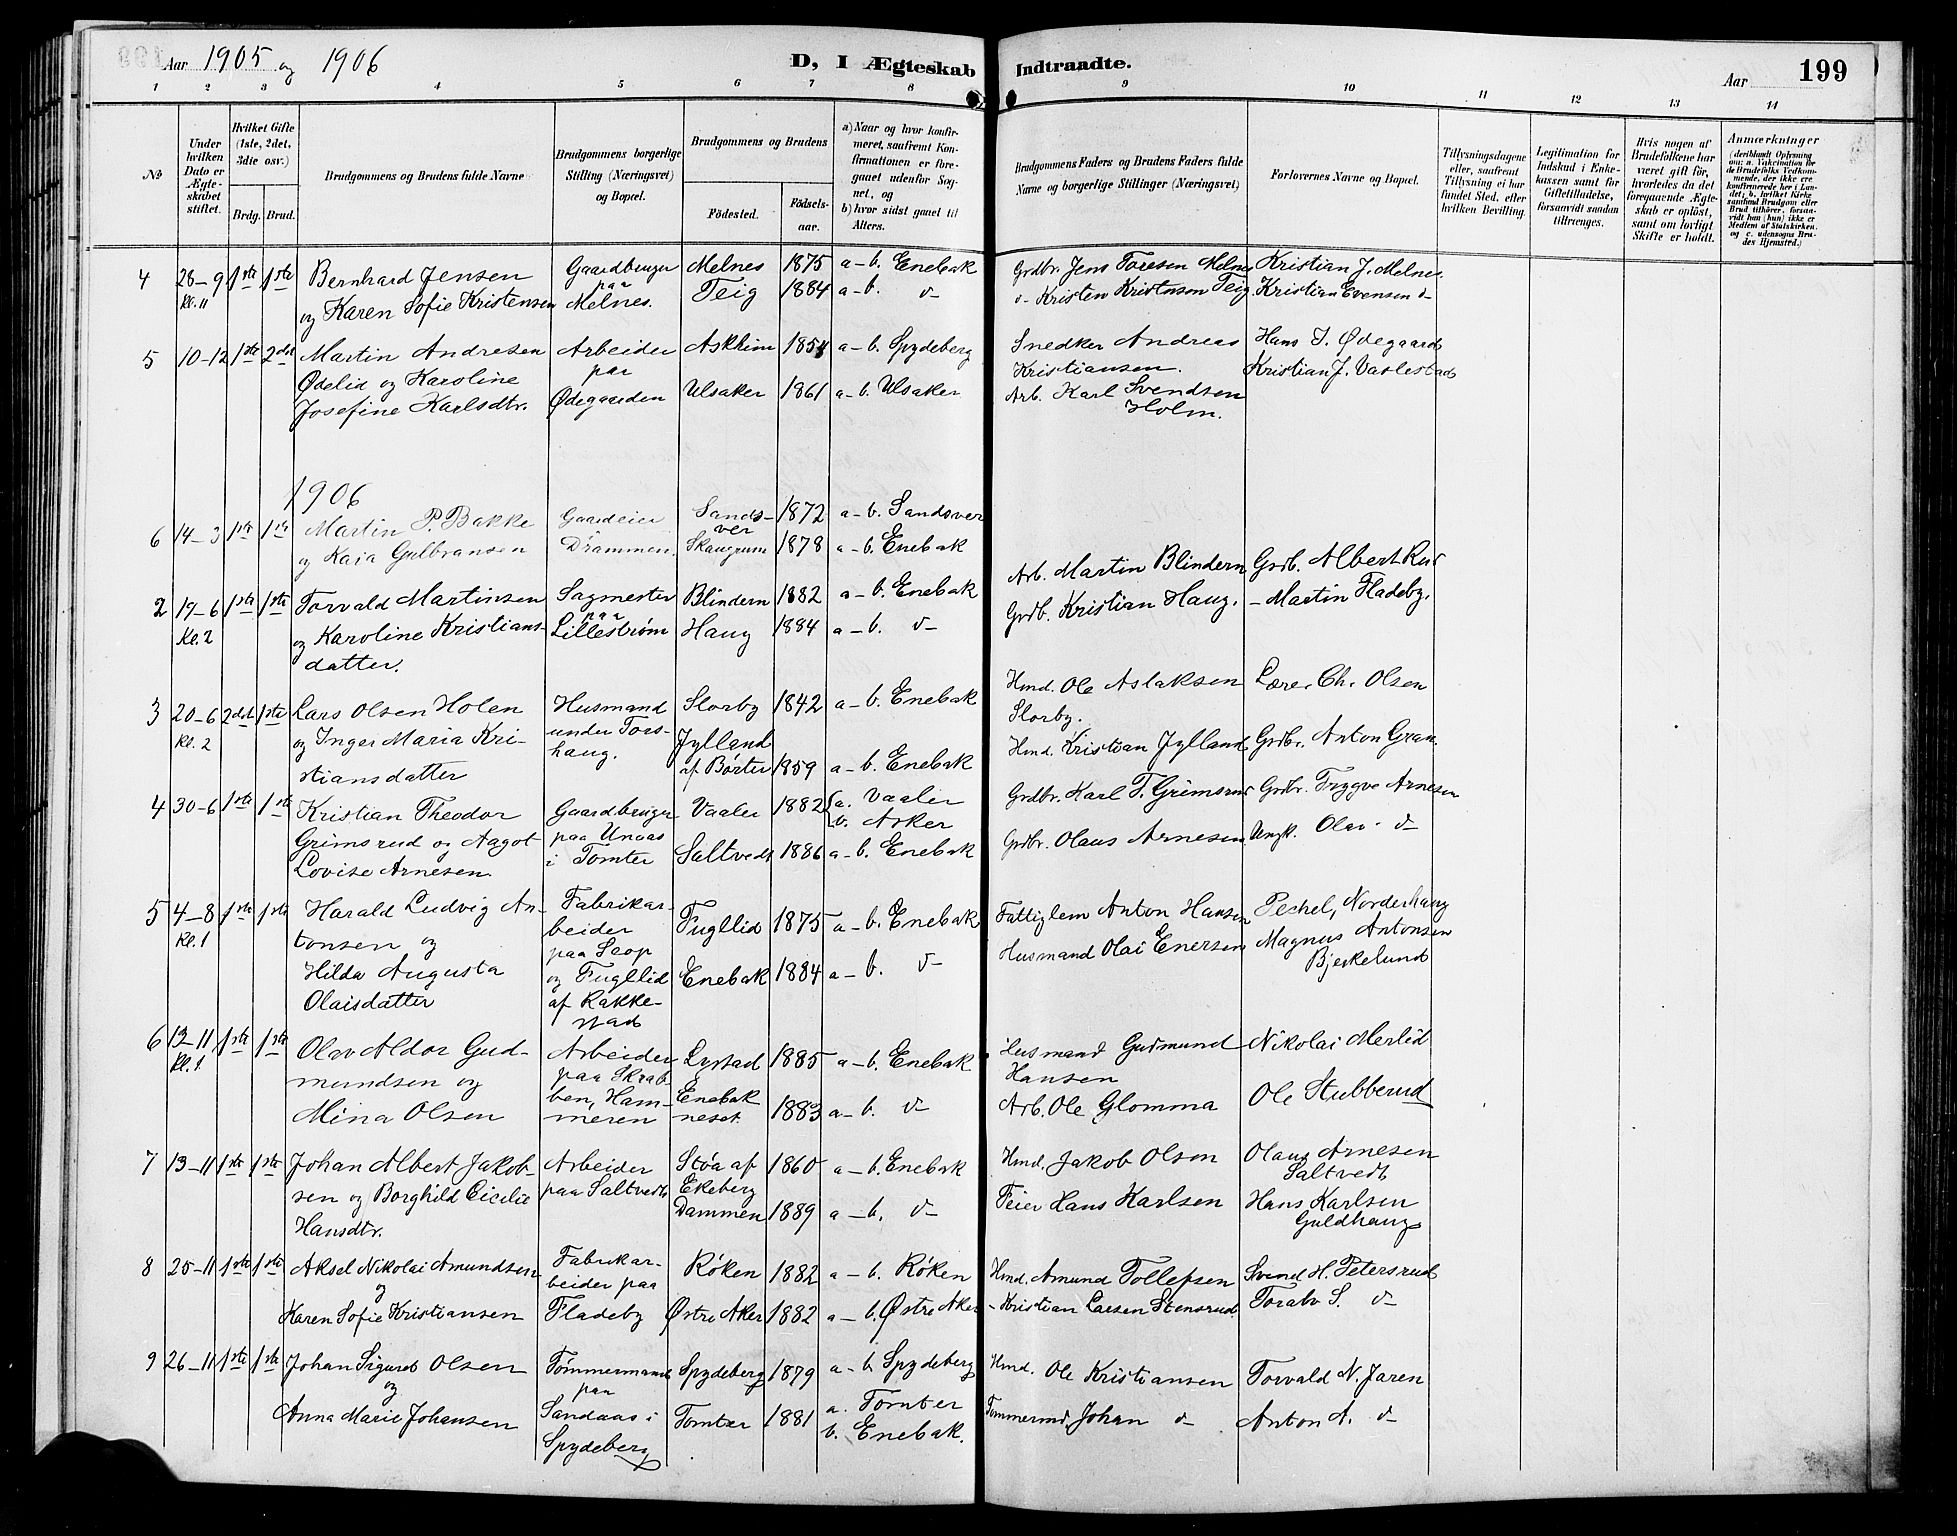 Aar 1905 og 1906
D, I Ægteskab Indtraadte.
Aar
199
1 2 3 4 5 6 7 8 9 10 11 12 13 14
No
Under hvilken Dato er Ægteskabet stiftet.
Hvilket Gifte (1ste, 2det, 3die osv.)
Brdg. Brud.
Brudgommens og Brudens fulde Navne
Brudgommens borgerlige Stilling (Næringsvei) og Bopæl.
Brudgommens og Brudens
Födested.
Födselsaar.
a) Naar og hvor konfirmeret, saafremt Konfirmationen er foregaaet udenfor Sognet, og
b) hvor sidst gaaet til Alters.
Brudgommens Faders og Brudens Faders fulde Navne og borgerlige Stillinger (Næringsvei)
Forlovernes Navne og Bopæl.
Tillysningsdagene eller, saafremt Tillysning ei har fundet Sted, efter hvilken Bevilling.
Legitimation for Indskud i Enkekassen samt for Giftetilladelse, forsaavidt saadan tiltrænges.
Hvis nogen af Brudefolkene har været gift för, hvorledes da det foregaaende Ægteskab er oplöst, samt om lovligt Skifte er holdt.
Anmærkninger
(deriblandt Oplysning om: a. Vakcination for de Brudefolks Vedkommende, der ikke ere konfirmerede her i Landet; b. hvilket Kirkesamfund Brudgom eller Brud tilhörer, forsaavidt han (hun) ikke er Medlem af Statskirken, og c. udensogns Brudes Hjemsted.)
4 28-9 1ste 1ste Bernhard Jensen Gaardbruger Melnes 1875 a-b. Enebak Grdbr. Jens Toresen Melnes Kristian J. Melnes
Kl. 11 og Karen Sofie Kristensen paa Melnes. Teig 1884 a-b. d- d- Kristen Kristensen Teig. Kristian Evensen d-
5 10-12 1ste 2det Martin Andresen Arbeider Askhim 1854 a-b. Spydeberg Snedker Andreas Hans J. Ødegaard
Ødelid og Karoline paa Kristiansen. Kristian J. Vatlestad
Josefine Karlsdtr. Ødegaarden Ulsaker 1861 a-b. Ulsaker Arb. Karl Svendsen
Holm.
1906
6 14-3 1ste 1ste Martin P. Bakke Gaardeier Sandsver 1872 a-b. Sandsver
og Kaia Gulbransen Drammen. Skaugrum 1878 a-b. Enebak
2 19-6 1ste 1ste Torvald Martinsen Sagmester Blindern 1882 a-b. Enebak Arb. Martin Blindern Grdb. Albert Rud
Kl. 2 og Karoline Kristians- paa Lillestrøm Haug 1884 a-b. d- Grdb. Kristian Haug. - Martin Fladeby.
datter.
3 20-6 2det 1ste Lars Olsen Holen Husmand Slorby 1842 a-b. Enebak Hmd. Ole Aslaksen Lærer Ch. Olsen
Kl. 2 og Inger Maria Kri- under Tors- Jylland Slorby.
stiansdatter haug. af Børter 1859 a-b. Enebak Hmd. Kristian Jylland Grdbr. Anton Gran.
4 30-6 1ste 1ste Kristian Theodor Gaardbruger Vaaler 1882 a. Vaaler Grdbr. Karl T. Grimsrud Grdbr. Trygve Arnesen
b. Asker
Grimsrud og Aagot paa Unaas
Lovise Arnesen i Tomter Saltvedt 1886 a-b. Enebak Grdbr. Olaus Arnesen Ungk. Olav d-
5 4-8 1ste 1ste Harald Ludvig An- Fabrikar- Fugllid 1875 a-b. Enebak Fattiglem Anton Hansen Pechel, Norderhaug
Kl. 1 tonsen og beider
Hilda Augusta paa Saap Enebak 1884 a-b. d- Husmand Olai Enersen Magnus Antonsen
Olaisdatter og Fugllid Bjerkelund
af Rakke-
stad
6 13-11 1ste 1ste Olav Aldor Gud- Arbeider Lystad 1885 a-b. Enebak Husmand Gudmund Nikolai Merlid
Kl. 1 mundsen og paa Skrab- Hansen
Mina Olsen ben, Ham- Enebak
meren neset. 1883 a-b. d- Arb. Ole Glomma Ole Stubberud
7 13-11 1ste 1ste Johan Albert Jakob- Arbeider Støa af 1860 a-b. Enebak Hmd. Jakob Olsen Olaus Arnesen
sen og Borghild Cicilie paa Saltvedt Ekeberg Saltvedt
Hansdtr. Dammen 1889 a-b. d- Feier Hans Karlsen Hans Karlsen
Guldhaug
8 25-11 1ste 1ste Aksel Nikolai Amundsen Fabrikar- Røken 1882 a-b. Røken Hmd. Amund Tollefsen Svend H. Petersrud
og beider paa
Karen Sofie Kristiansen Fladeby Østre Aker 1882 a-b. Østre Aker - Kristian Larsen Stensrud. Torals S. d-
9 26-11 1ste 1ste Johan Sigurd Olsen Tømmermand Spydeberg 1879 a-b Spydeberg Hmd. Ole Kristiansen Torvald N. Jaren
og paa
Anna Marie Johansen Sandaas i Tomter 1881 a. Tomter Tømmermd. Johan d- Anton A. d-
Spydeberg b. Enebak.